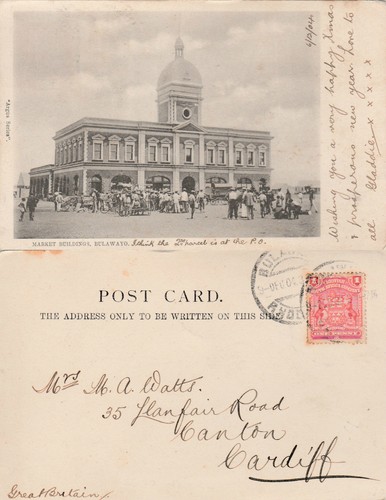 6/12/04
Wishing you a very happy Xmas
& prosperous new year love to
all Gladdie x x x x x
"Argus Series"
MARKET BUILDINGS, BULAWAYO. I think the 2nd parcel is at the P.O.
POST CARD.
THE ADDRESS ONLY TO BE WRITTEN ON THIS SIDE
Mrs M. A. Watts.
35 Llanfair Road
Canton
Cardiff
Great Britain